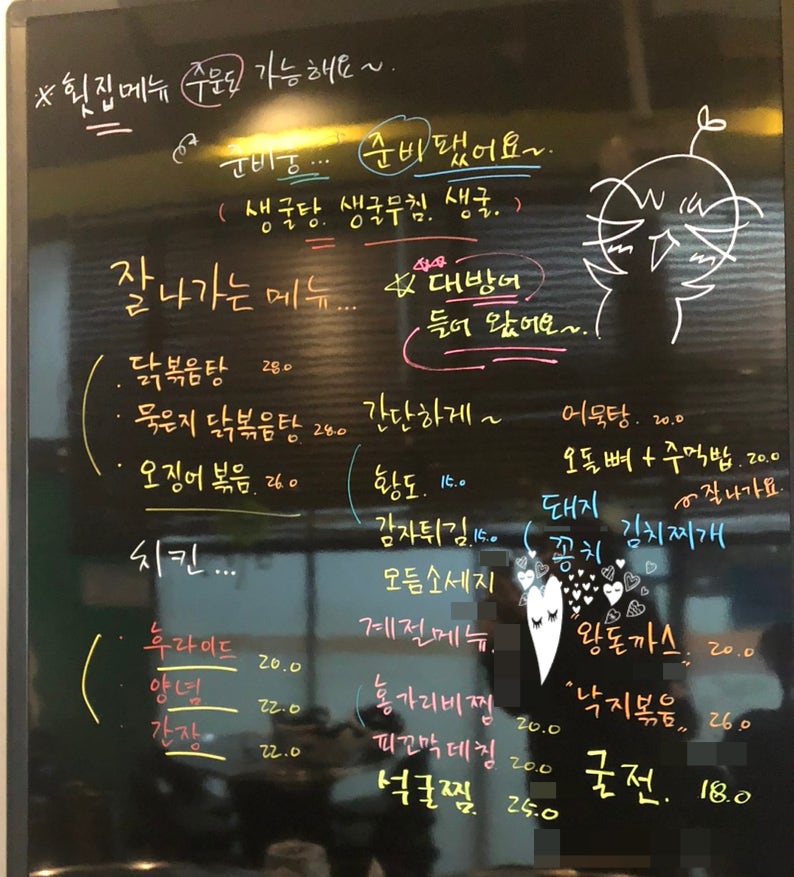 ※ 횟집메뉴 주문도 가능해요~.
준비중... 준비 됐어요~.
( 생굴탕. 생굴무침. 생굴. )
잘 나가는 메뉴...
☆ 대방어
들어 왔어요~.
· 닭볶음탕 28.0
· 묵은지 닭볶음탕. 28.0
· 오징어 볶음. 26.0
치킨...
· 후라이드 20.0
· 양념 22.0
· 간장 22.0
간단하게 ~
황도. 15.0
감자튀김. 15.0
모듬소세지
계절메뉴.
홍가리비찜 20.0
피꼬막데침. 20.0
석굴찜. 25.0
어묵탕. 20.0
오돌뼈 + 주먹밥. 20.0
잘나가요.
돼지
꽁치 김치찌개
"왕돈까스" 20.0
"낙지볶음" 26.0
굴전. 18.0